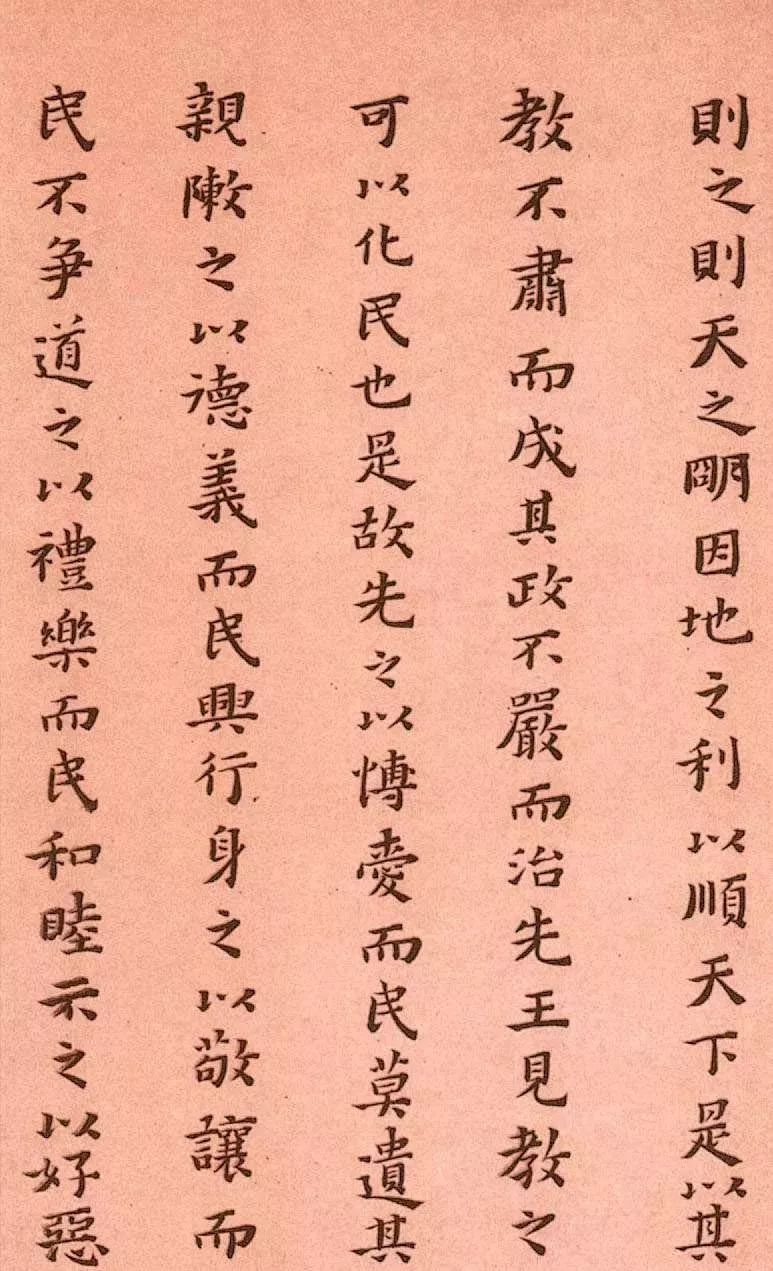 則之則天之明因地之利以順天下是以其
教不肅而成其政不嚴而治先王見教之
可以化民也是故先之以愽愛而民莫遺其
親敶之以德義而民興行身之以敬讓而
民不争道之以禮樂而民和睦示之以好惡